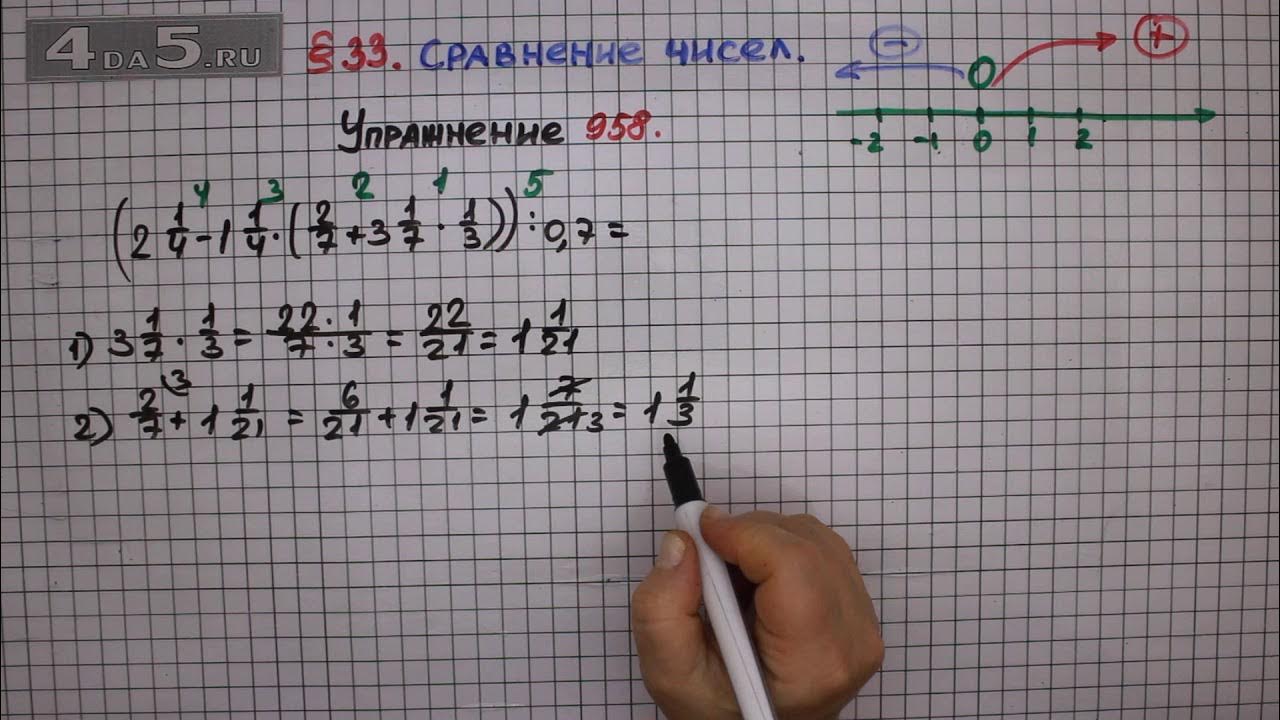 4DA5.RU
§33. Сравнение чисел.
− +
-2 -1 0 1 2
0
Упражнение 958.
4 3 2 1 5
(2 1/4 - 1 1/4 · (2/7 + 3 1/7 · 1/3)) : 0,7 =
1) 3 1/7 · 1/3 = 22 · 1/7 · 3 = 22/21 = 1 1/21
2) 2/7 (3 + 1 1/21 = 6/21 + 1 1/21 = 1 7/21 3 = 1 1/3